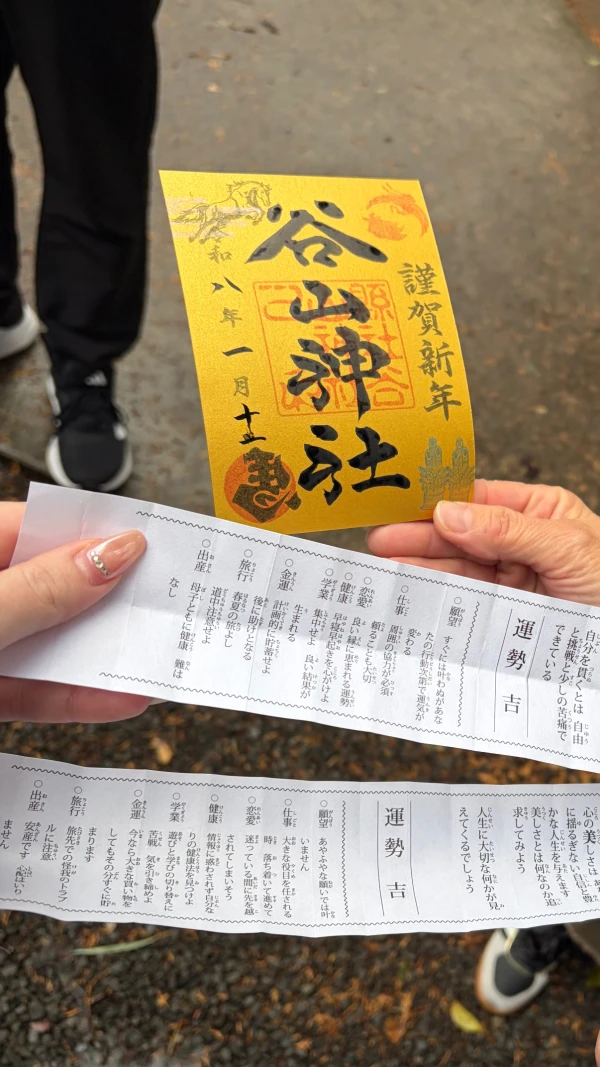 謹賀新年
谷山神社
令和八年一月十五
自分を貫くとは 自由
と挑戦と少しの苦痛で
できている
運勢 吉
○願望 すぐには叶わぬがあな
たの行動次第で運気が
変わる
○仕事 周囲の協力が必須
頼ることも大切
○恋愛 良い縁に恵まれる運勢
○健康 早寝早起きを心がけよ
○学業 集中せよ 良い結果が
生まれる
○金運 計画的に貯蓄せよ
後に助けとなる
○旅行 春夏の旅よし
道中注意せよ
○出産 母子ともに健康 難は
なし
心の美しさは
に揺るぎない自信と豊
かな人生を与えます
美しさとは何なのか追
求してみよう
人生に大切な何かが見
えてくるでしょう
運勢 吉
○願望 あやふやな願いでは叶
いません
○仕事 大きな役目を任される
時 落ち着いて進めて
○恋愛 迷っている間に先を越
されてしまいそう
○健康 情報に惑わされず自分な
りの健康法を見つけよ
○学業 遊びと学びの切り替えに
苦戦 気を引き締めよ
○金運 今なら大きな買い物を
してもその分すぐに貯
まります
○旅行 旅先での怪我のトラブ
ルに注意
○出産 安産です 心配いり
ません